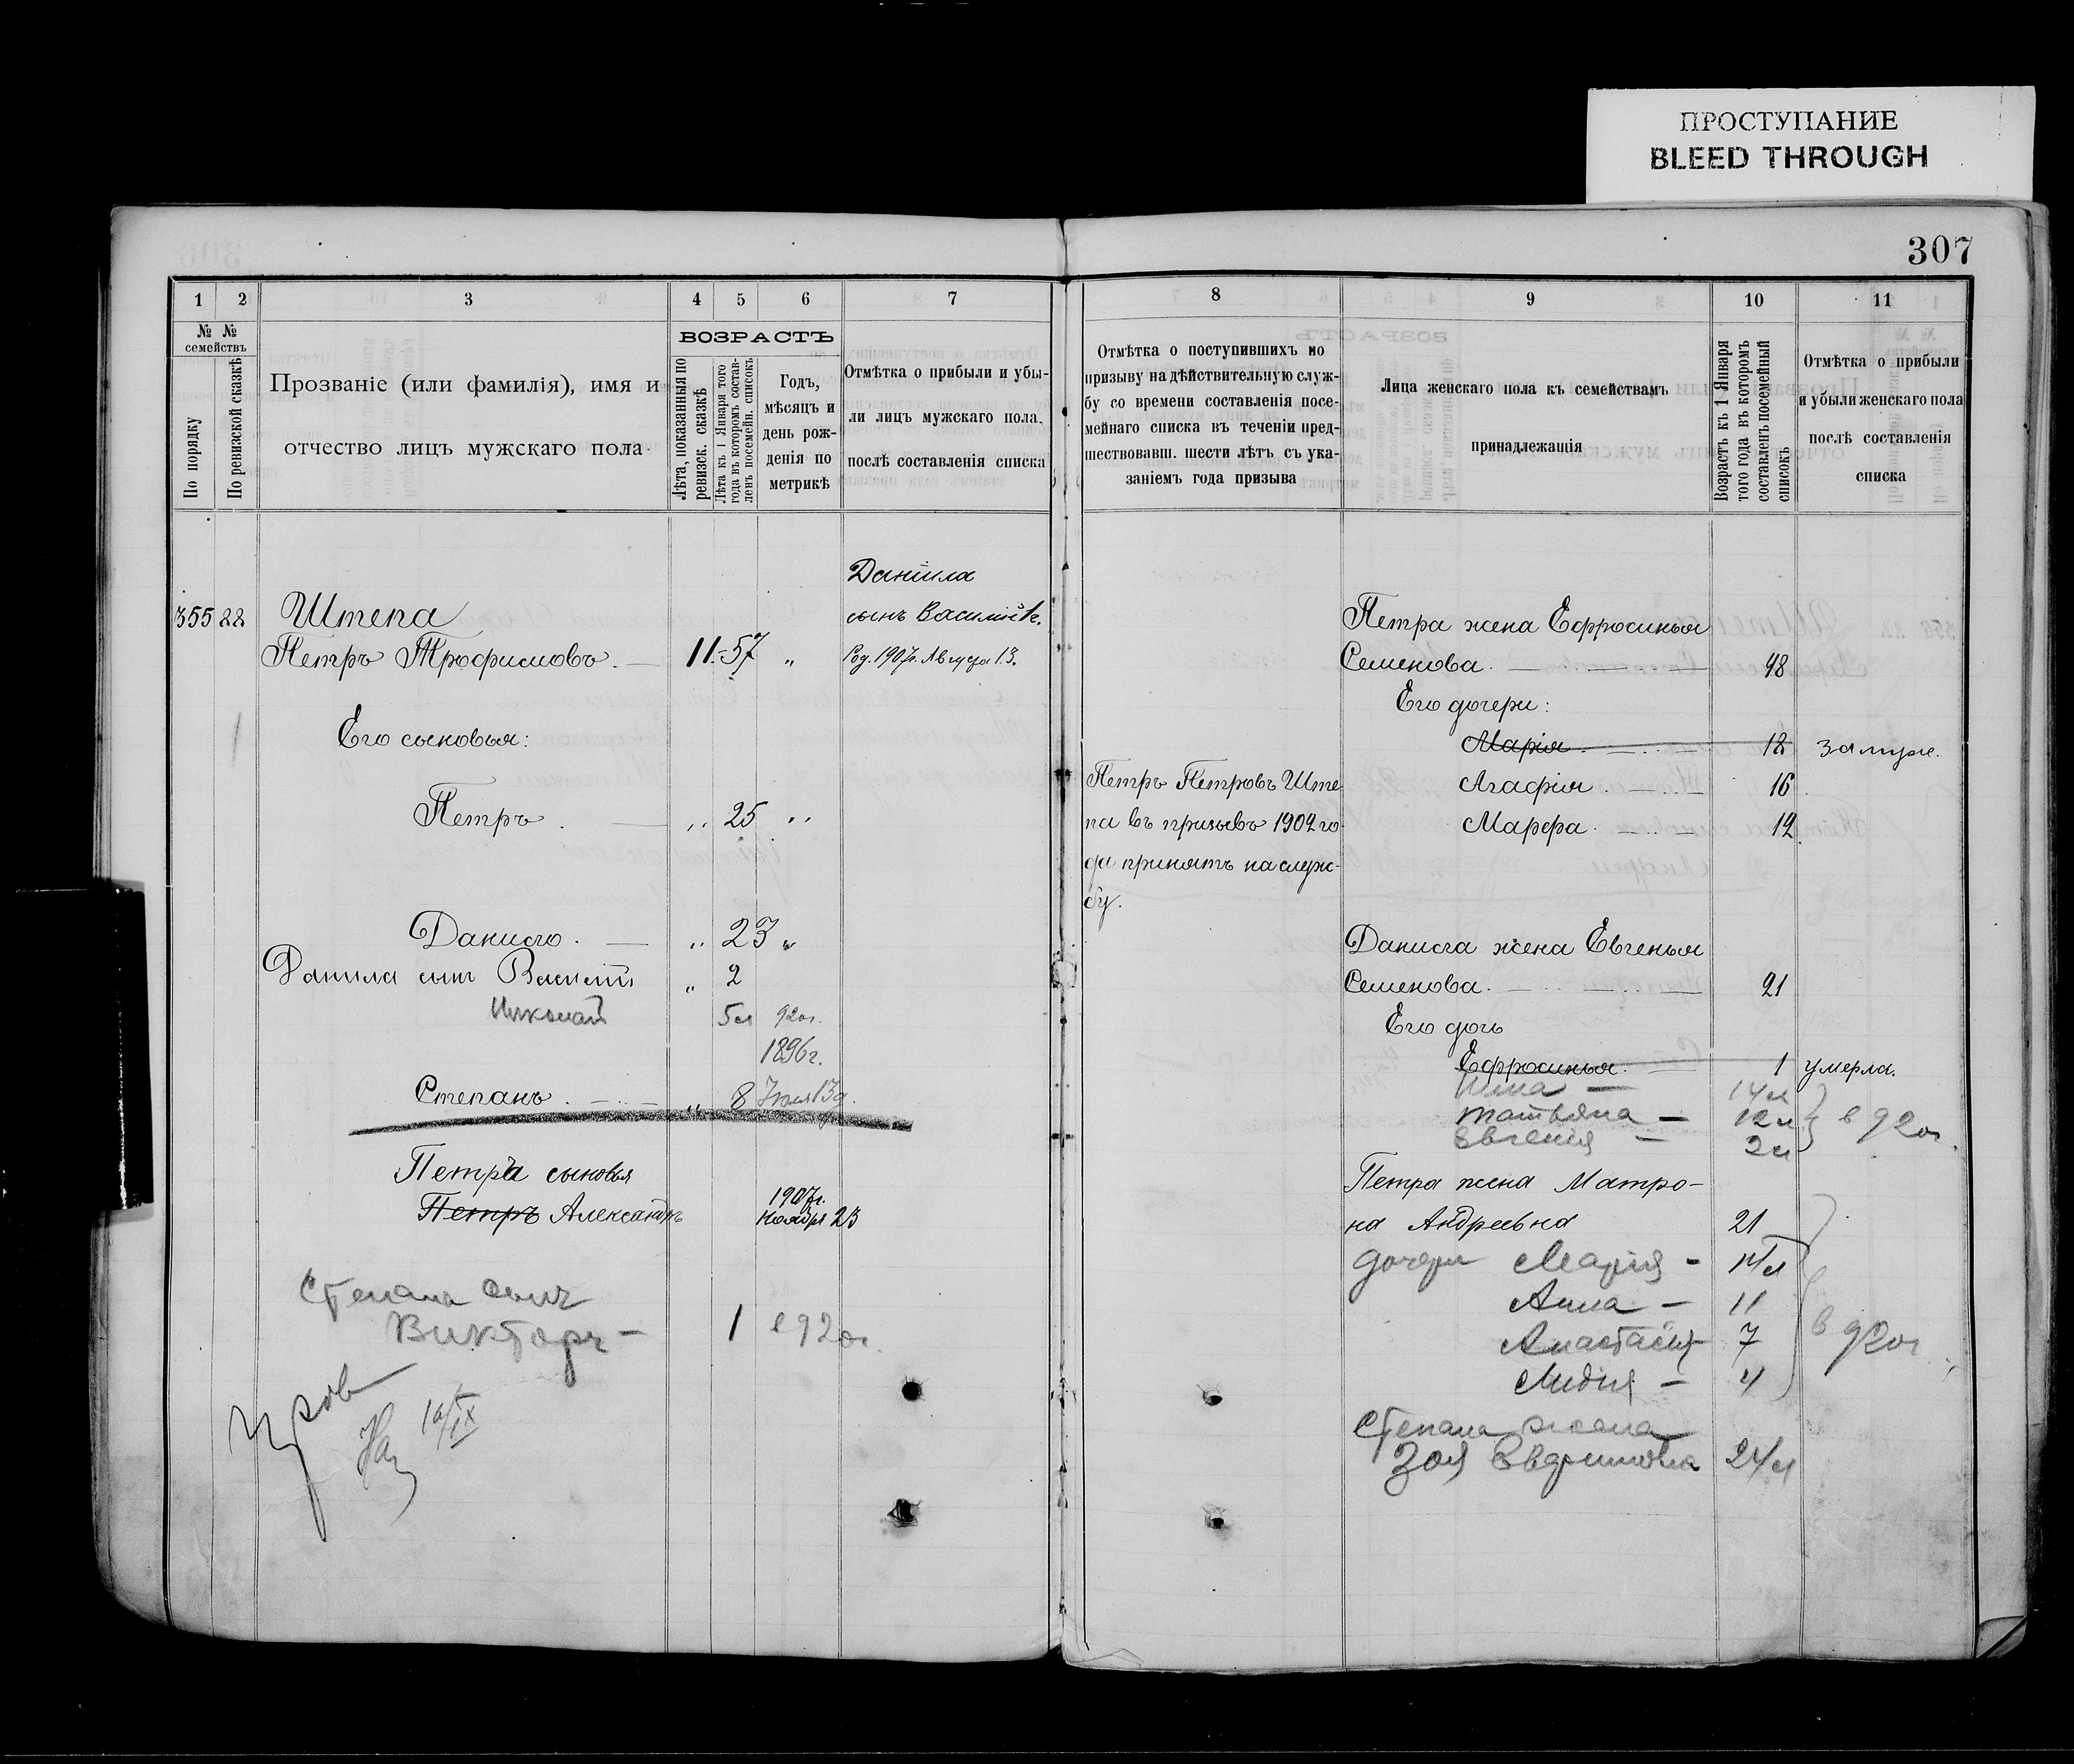 ПРОСТУПАНИЕ
BLEED THROUGH
307
1 2 3 4 5 6 7
№ № семействъ
По порядку
По ревизской сказкѣ
Прозваніе (или фамилія), имя и
отчество лицъ мужскаго пола
ВОЗРАСТЪ
Лѣта, показанныя по
ревизск. сказкѣ
Лѣта къ 1 Января того
года въ которомъ состав-
ленъ посемейн. списокъ
Годъ,
мѣсяцъ и
день рож-
денія по
метрикѣ
Отмѣтка о прибыли и убы-
ли лицъ мужскаго пола,
послѣ составленія списка
Данiила
355 22 Штепа сынъ Василій.
Петръ Трофимовъ. 11.-57 „ Род. 1907г. Августа 13.
Его сыновья:
Петръ. „ 25 „
Данило. „ 23 „
Данила сынъ Василій „ 2
Николай 5л 920г.
1896г.
Степанъ. „ 8 Іюля 13д.
Петра сыновья
Петръ Александръ 1907г. Ноября 23
Степана сынъ
Викторъ - 1 в 920г.
8 9 10 11
Отмѣтка о поступившихъ по
призыву на дѣйствительную служ-
бу со времени составленія посе-
мейнаго списка въ теченіи пред-
шествовавш. шести лѣтъ съ ука-
заніемъ года призыва
Лица женскаго пола къ семействамъ
принадлежащія
Возрастъ къ 1 Января
того года въ которомъ
составленъ посемейный
списокъ
Отмѣтка о прибыли
и убыли женскаго пола
послѣ составленія
списка
Петръ Петровъ Ште
па въ призывъ 1902 го-
да принятъ на служ-
бу.
Петра жена Ефросинья
Семенова. 48
Его дочери:
Марія 18 замуж.
Агафія. 16
Марфа. 12
Данила жена Евгенья
Семенова. 21
Его дочь
Ефросинья. 1 умерла.
14л
Татьяна - 12л в 920г.
Евгения - 2л
Петра жена Матро-
на Андреевна 21
дочери Мария - 14л
Анна - 11
Анастасия 7 в 920г
Лидия - 4
Степана жена
Зоя 24л